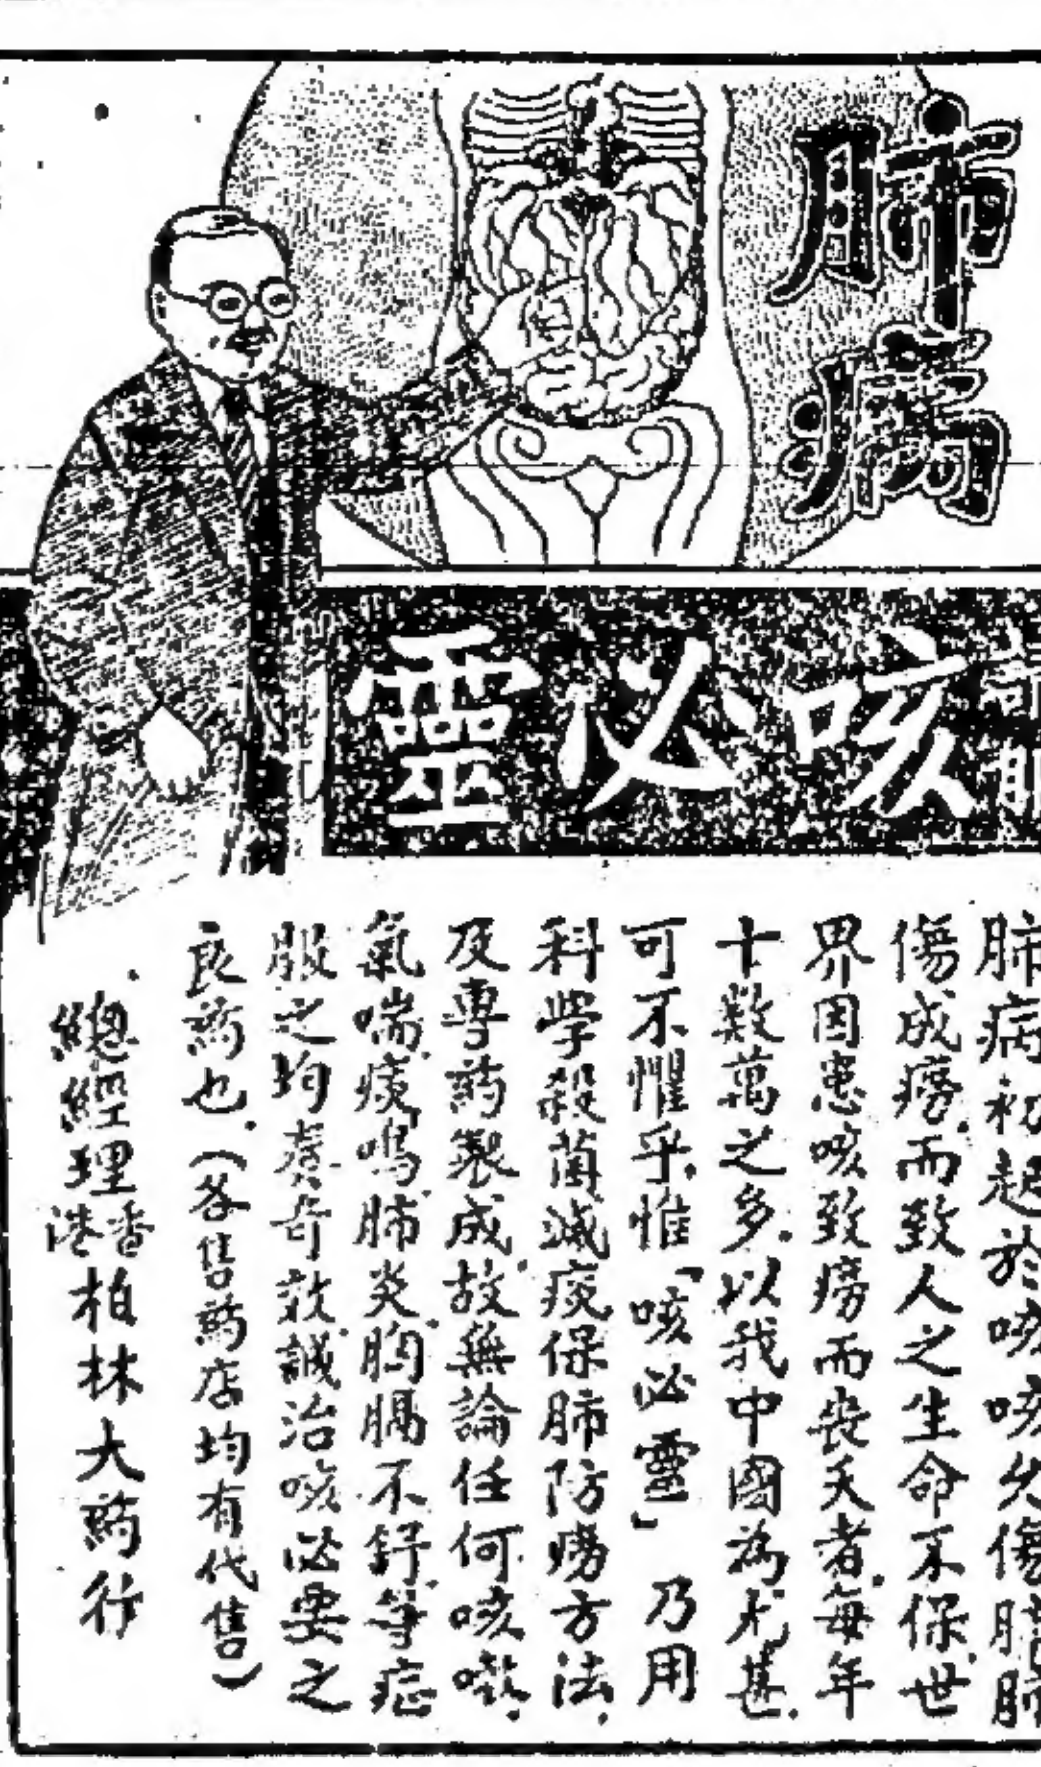 肺病
咳必靈
肺病初起於咳咳久傷肺肺
傷成癆.而致人之生命不保.世
界因患咳致癆而喪夭者.每年
十數萬之多.以我中國為尤甚.
可不懼乎.惟「咳必靈」乃用
科學殺菌滅痰保肺防癆方法.
及專药製成.故無論任何咳嗽.
氣喘.痰鳴.肺炎.胸膈不舒.等症
服之均奏奇效.誠治咳必要之
良药也.(各售药店均有代售)
總經理香港柏林大药行